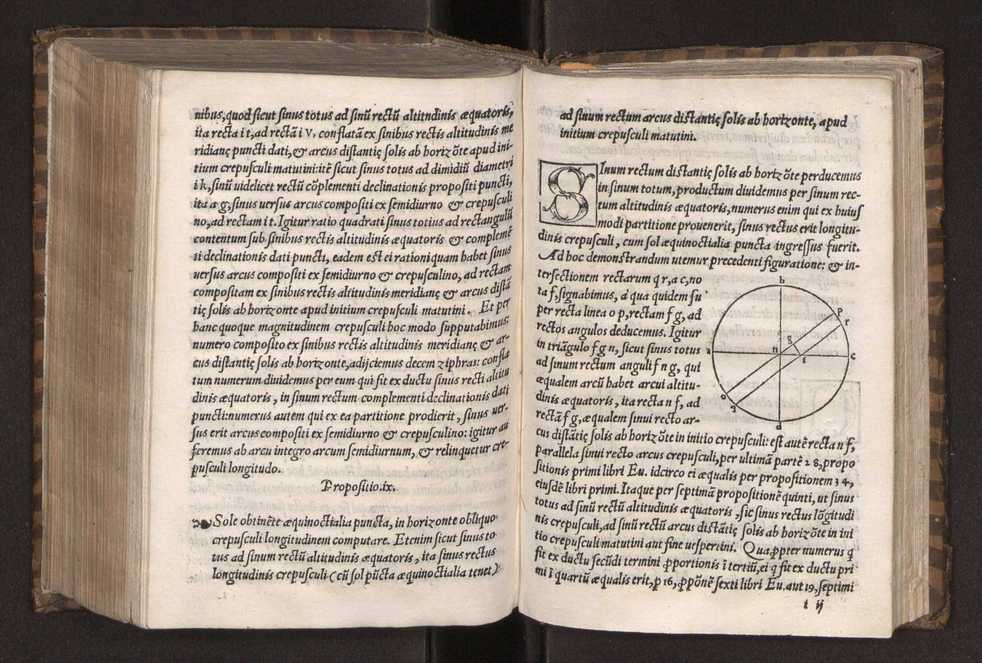 nibus, quod sicut sinus totus ad sinũ rectũ altitndinis æquatoris,
ita recta i t, ad rectã i v. conflatã ex sinibus rectis altitudinis me
ridianę puncti dati, & arcus distantię solis ab horizõte apud ini-
tium crepusculi matutini: itẽ sicut sinus totus ad dimidiũ diametri
i k, sinũ uidelicet rectũ cõplementi declinationis propositi puncti,
ita a g, sinus versus arcus compositi ex semidiurno & crepusculi
no, ad rectam i t. Igitur ratio quadrati sinus totius ad rectangulũ
contentum sub sinibus rectis altitudinis æquatoris & complemẽ
ti declinationis dati puncti, eadem est ei rationi quam habet sinus
versus arcus compositi ex semidiurno & crepusculino, ad rectam
compositam ex sinibus rectis altitudinis meridianę & arcus distã
tię solis ab horizonte apud initium crepusculi matutini. Et per
hanc quoque magnitudinem crepusculi hoc modo supputabimus:
numero composito ex sinibus rectis altitudinis meridianę & ar-
cus distantię solis ab horizonte, adijciemus decem ziphras: confla
tum numerum diuidemus per eum qui fit ex ductu sinus recti altitu
dinis æquatoris, in sinum rectum complementi declinationis dati
puncti: numerus autem qui ex ea partitione prodierit, sinus ver-
sus erit arcus compositi ex semidiurno & crepusculino: igitur au
feremus ab arcu integro arcum semidiurnum, & relinquetur cre-
pusculi longitudo.
Propositio.ix.
Sole obtinẽte æquinoctialia puncta, in horizonte obliquo
crepusculi longitudinem computare. Etenim sicut sinus to
tus ad sinum rectũ altitudinis æquatoris, ita sinus rectus
longitudinis crepusculi (cũ sol pũcta æquinoctialia tenet)
ad sinum rectum arcus distantię solis ab horizonte, apud
initium crepusculi matutini.
SInum rectum distantię solis ab horizõte perducemus
in sinum totum, productum diuidemus per sinum rec-
tum altitudinis æquatoris, numerus enim qui ex huius
modi partitione prouenerit, sinus rectus erit longitu-
dinis crepusculi, cum sol æquinoctialia puncta ingressus fuerit.
Ad hoc demonstrandum utemur precedenti figuratione: & in-
tersectionem rectarum q r, a c, no
ta f, signabimus, á qua quidem su
per recta linea o p, rectam f g, ad
rectos angulos deducemus. Igitur
in triãgulo f g n, sicut sinus totus
ad sinum rectum anguli f n g, qui
æqualem arcũ habet arcui altitu-
dinis æquatoris, ita recta n f, ad
rectã f g, æqualem sinui recto ar-
cus distãtię solis ab horizõte in initio crepusculi: est autẽ recta n f,
parallela sinui recto arcus crepusculi, per ultimã partẽ 28, propo
sitionis primi libri Eu. idcirco ei æqualis per propositionem 34,
eiusdẽ libri primi. Itaque per septimã propositionẽ quinti, ut sinus
totus ad sinũ rectũ altitudinis æquatoris, sic sinus rectus lõgitudi
nis crepusculi, ad sinũ rectũ arcus distãtię solis ab horizõte in ini
tio crepusculi matutini aut fine uespertini. Quapp̱ter numerus q̃
fit ex ductu secũdi termini p̱portionis ĩ tertiũ, ei q̃ fit ex ductu pri
mi ĩ quartũ æqualis erit, p̱ 16, p̱põnẽ sexti libri Eu. aut 19, septimi
b
p
r
g
a
n
f
c
o
q
d
t ij